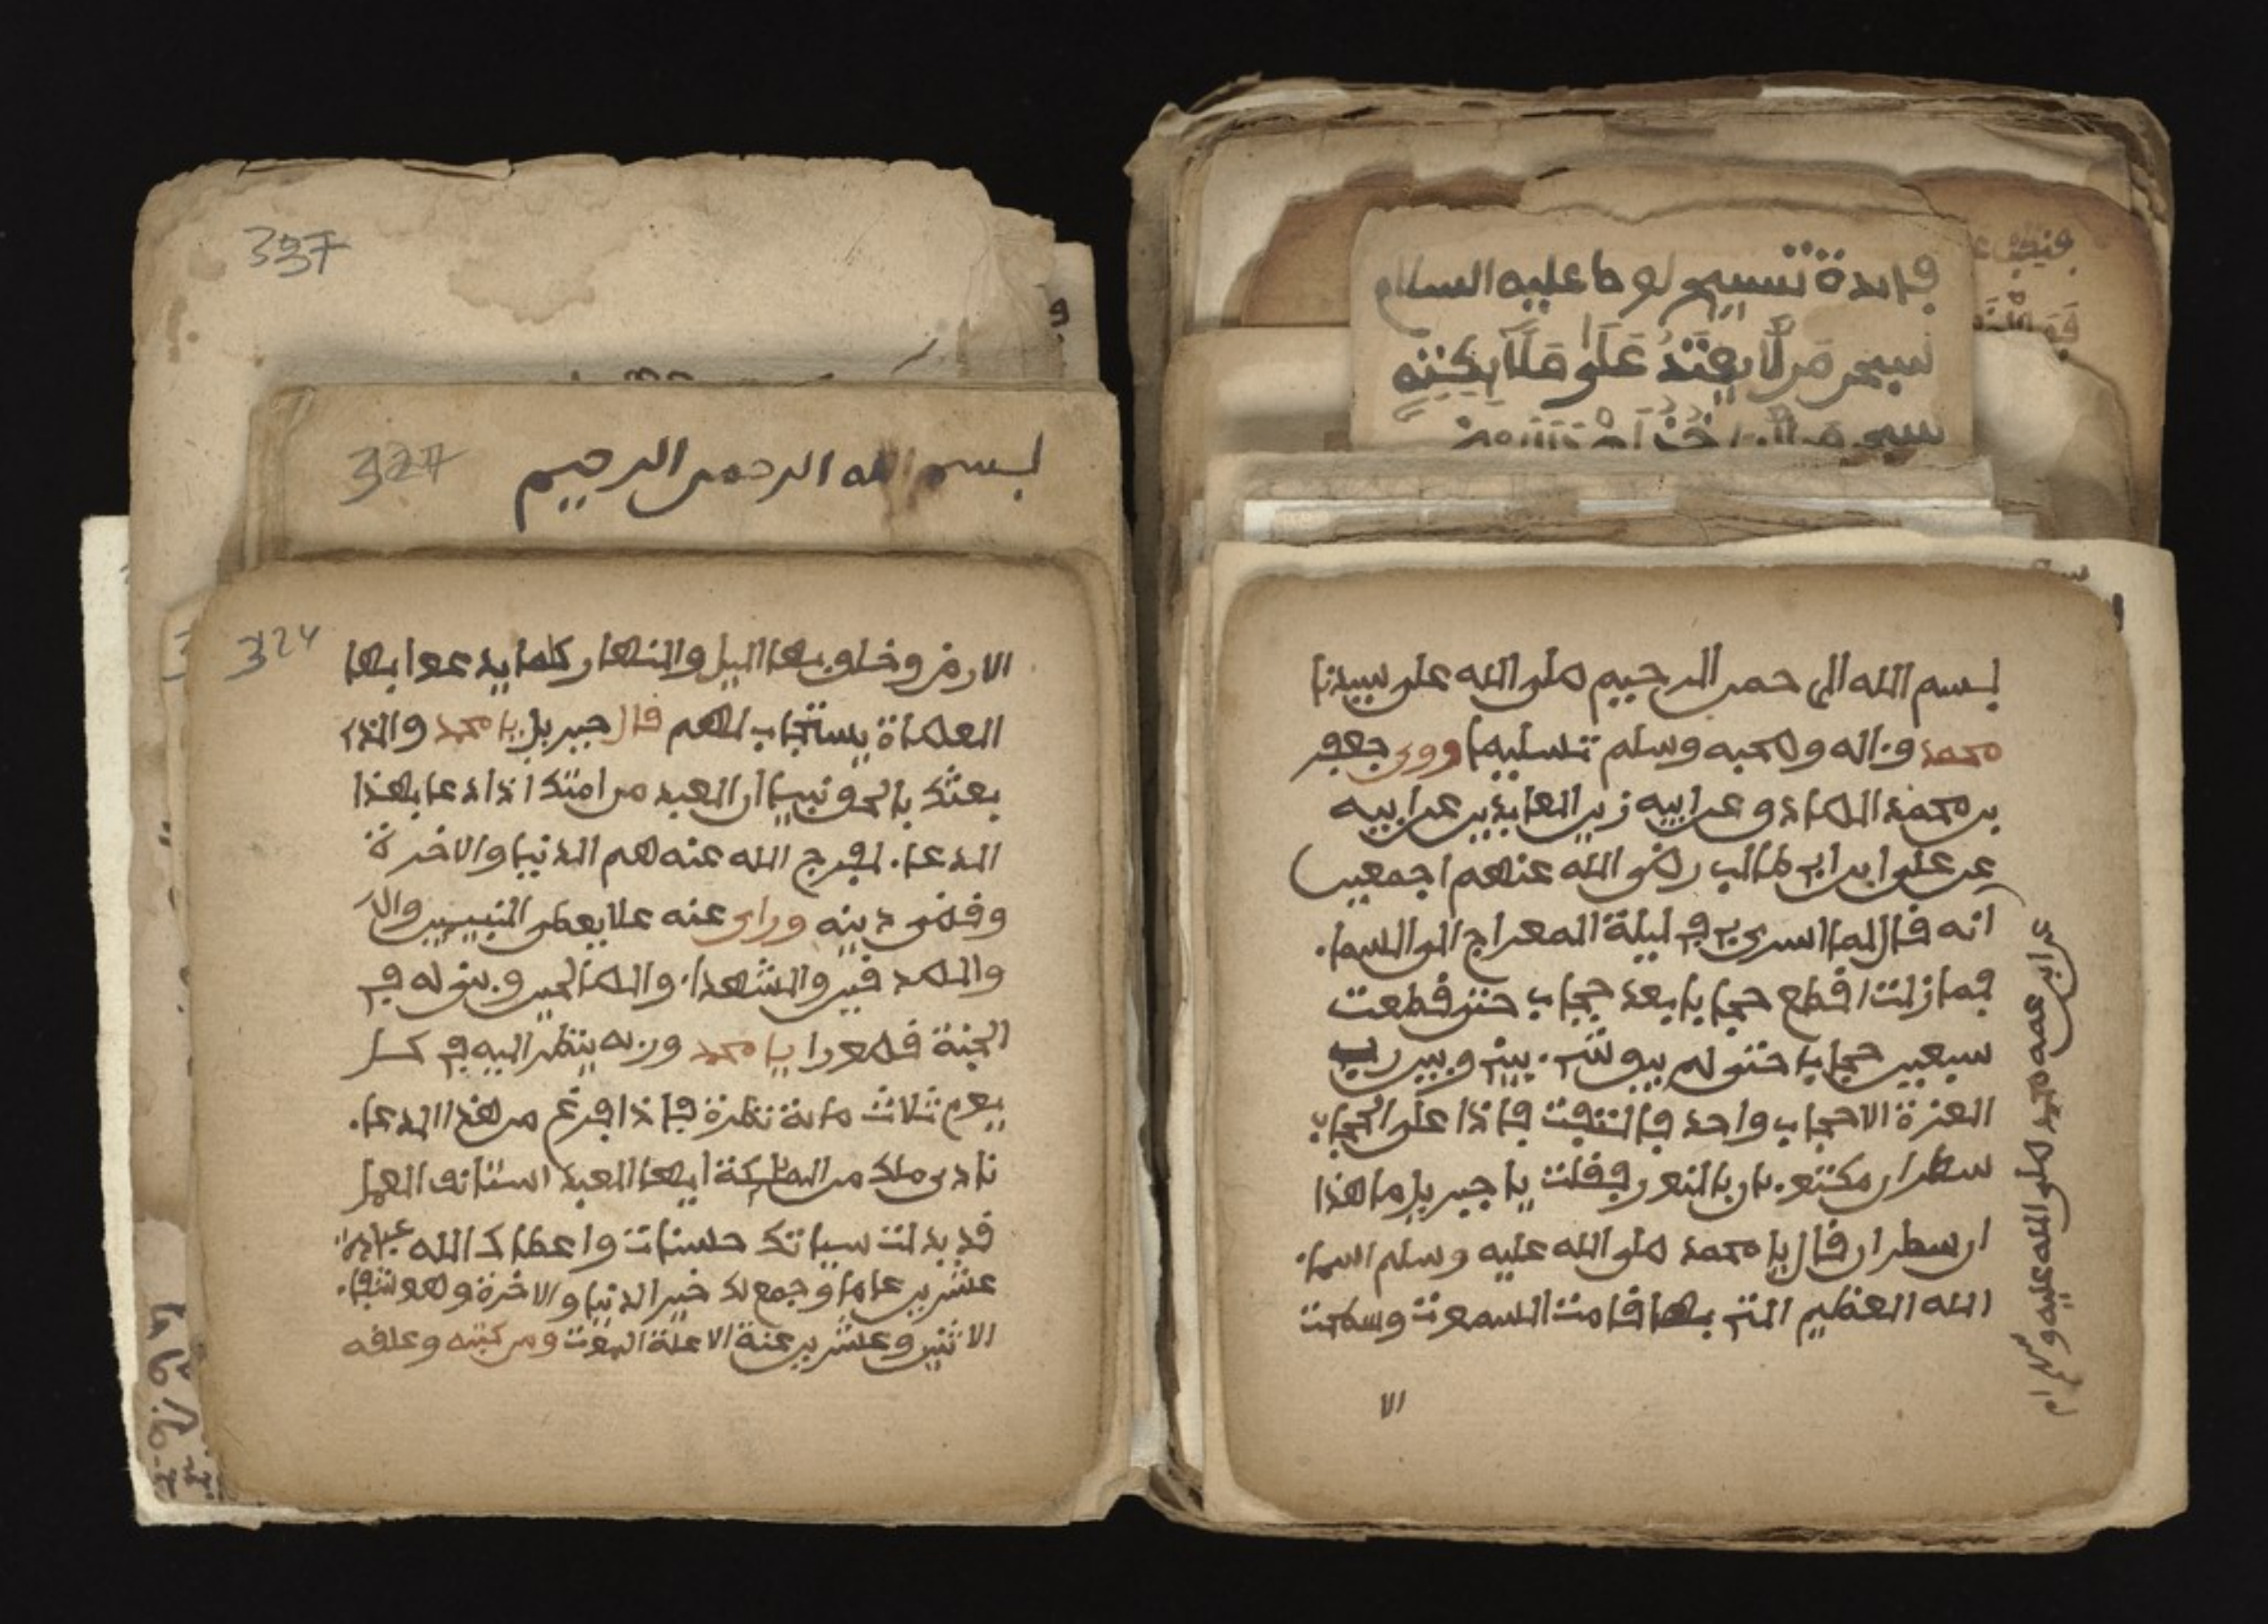 فايدة تسبيح لوط عليه السلام
سبحن من لا يعتد على
بسم الله الرحمن الرحيم صلى الله على سيدنا
محمد وءاله وصحبه وسلم تسليما ورى جعفر
بن محمد الصادق عن ابيه زين العابدين عن ابيه
عن على ابن ابي طالب رضى الله عنهم اجمعين
انه قال لما اسرى بي في ليلة المعراج الى السماء
فما زلت اقطع حجابا بعد حجاب حتى قطعت
سبعين حجابا حتى لم يبق شيء بيني وبين رب
العزة الا حجاب واحد فالتفت فاذا على الحجاب
سطران مكتوبان بالنور فقلت يا جبريل ما هذا
ان سطران قال يا محمد صلى الله عليه وسلم اسماء
الله العظيم التي بها قامت السموت وسطحت
الا
عن ابن عمه محمد صلى الله عليه و
337
327
بسم الله الرحمن الرحيم
324
الارض وخلق بها اليل والنهار كلما يدعوا بها
العصاة يستجاب لهم قال جبريل يا محمد والذي
بعثك بالحق نبيا ان العبد من امتك اذا دعا بهذا
الدعاء لفرج الله عنه هم الدنيا والاخرة
وقضى دينه وراى عنه ما يعطى النبيين وال
والصدقين والشهداء والصالحين وبنى له في
الجنة قصورا يا محمد وربه ينظر اليه في كل
يوم ثلاث ماية نظرة فاذا فرغ من هذا الدعاء
نادى ملك من الملايكة ايها العبد استانف العمل
قد بدلت سياتك حسنات واعطاك الله عبادة
عشرين عاما وجمع لك خير الدنيا والاخرة وهو شفاء
الاثنين وعشرين علة الا علة الموت ومن كتبه وعلقه